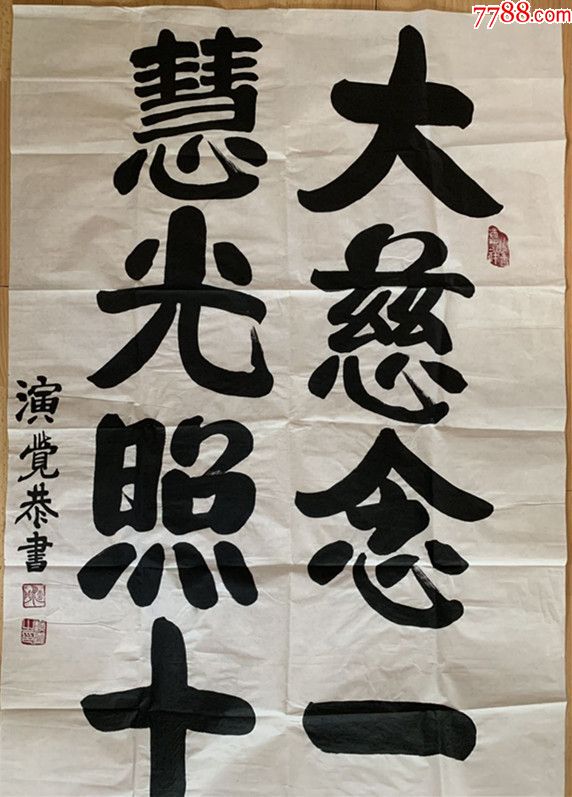 7788.com
大慈念一
慧光照十
演覺恭書